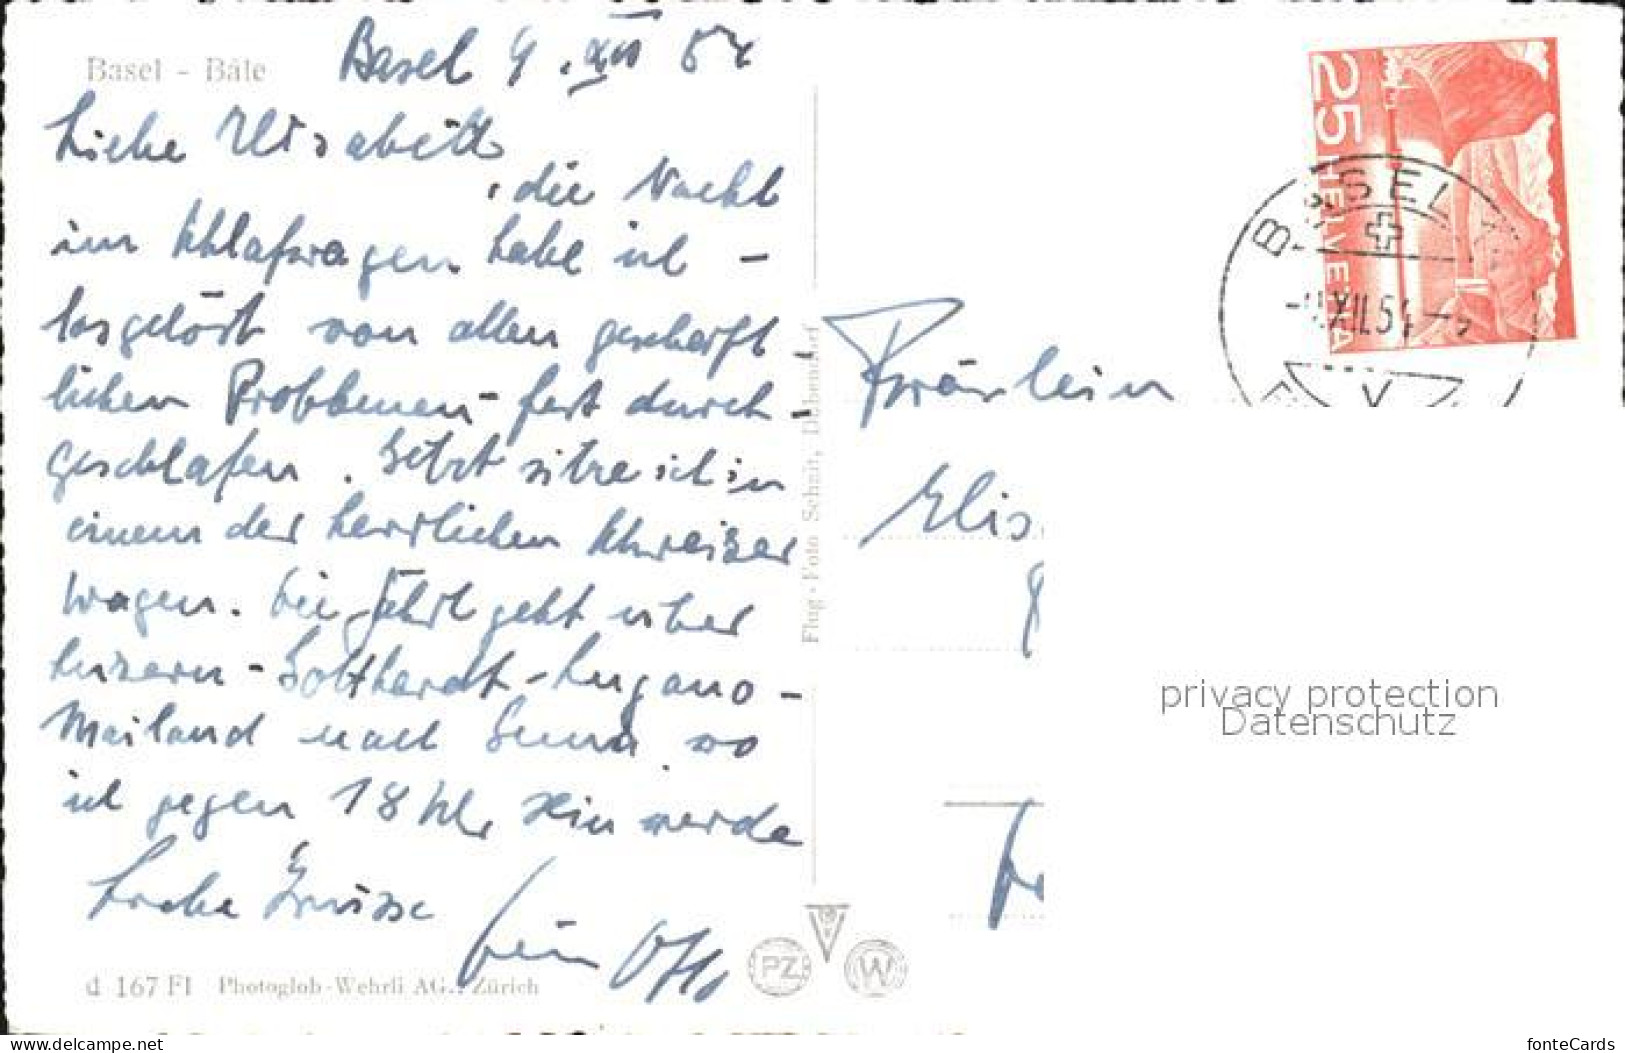 Basel - Bâle
Basel 9. XII 54
Liebe Elisabeth
, die Nacht
im Schlafwagen habe ich -
losgelöst von allen geschäft-
lichen Problemen - fest durch-
geschlafen. Jetzt sitze ich in
einem der herrlichen Schweizer
Wagen. Die Fahrt geht über
Luzern - Gotthardt - Lugano -
Mailand nach Genua wo
ich gegen 18 Uhr sein werde
Grüsse
Dein Otto
d 167 Fl Photoglob-Wehrli AG., Zürich
Flug-Foto Schait, Dübendorf
PZ
W
25 HELVETIA
BASEL
XII.54
Fräulein
Elis
privacy protection
Datenschutz
https://www.delcampe.net
fonteCards